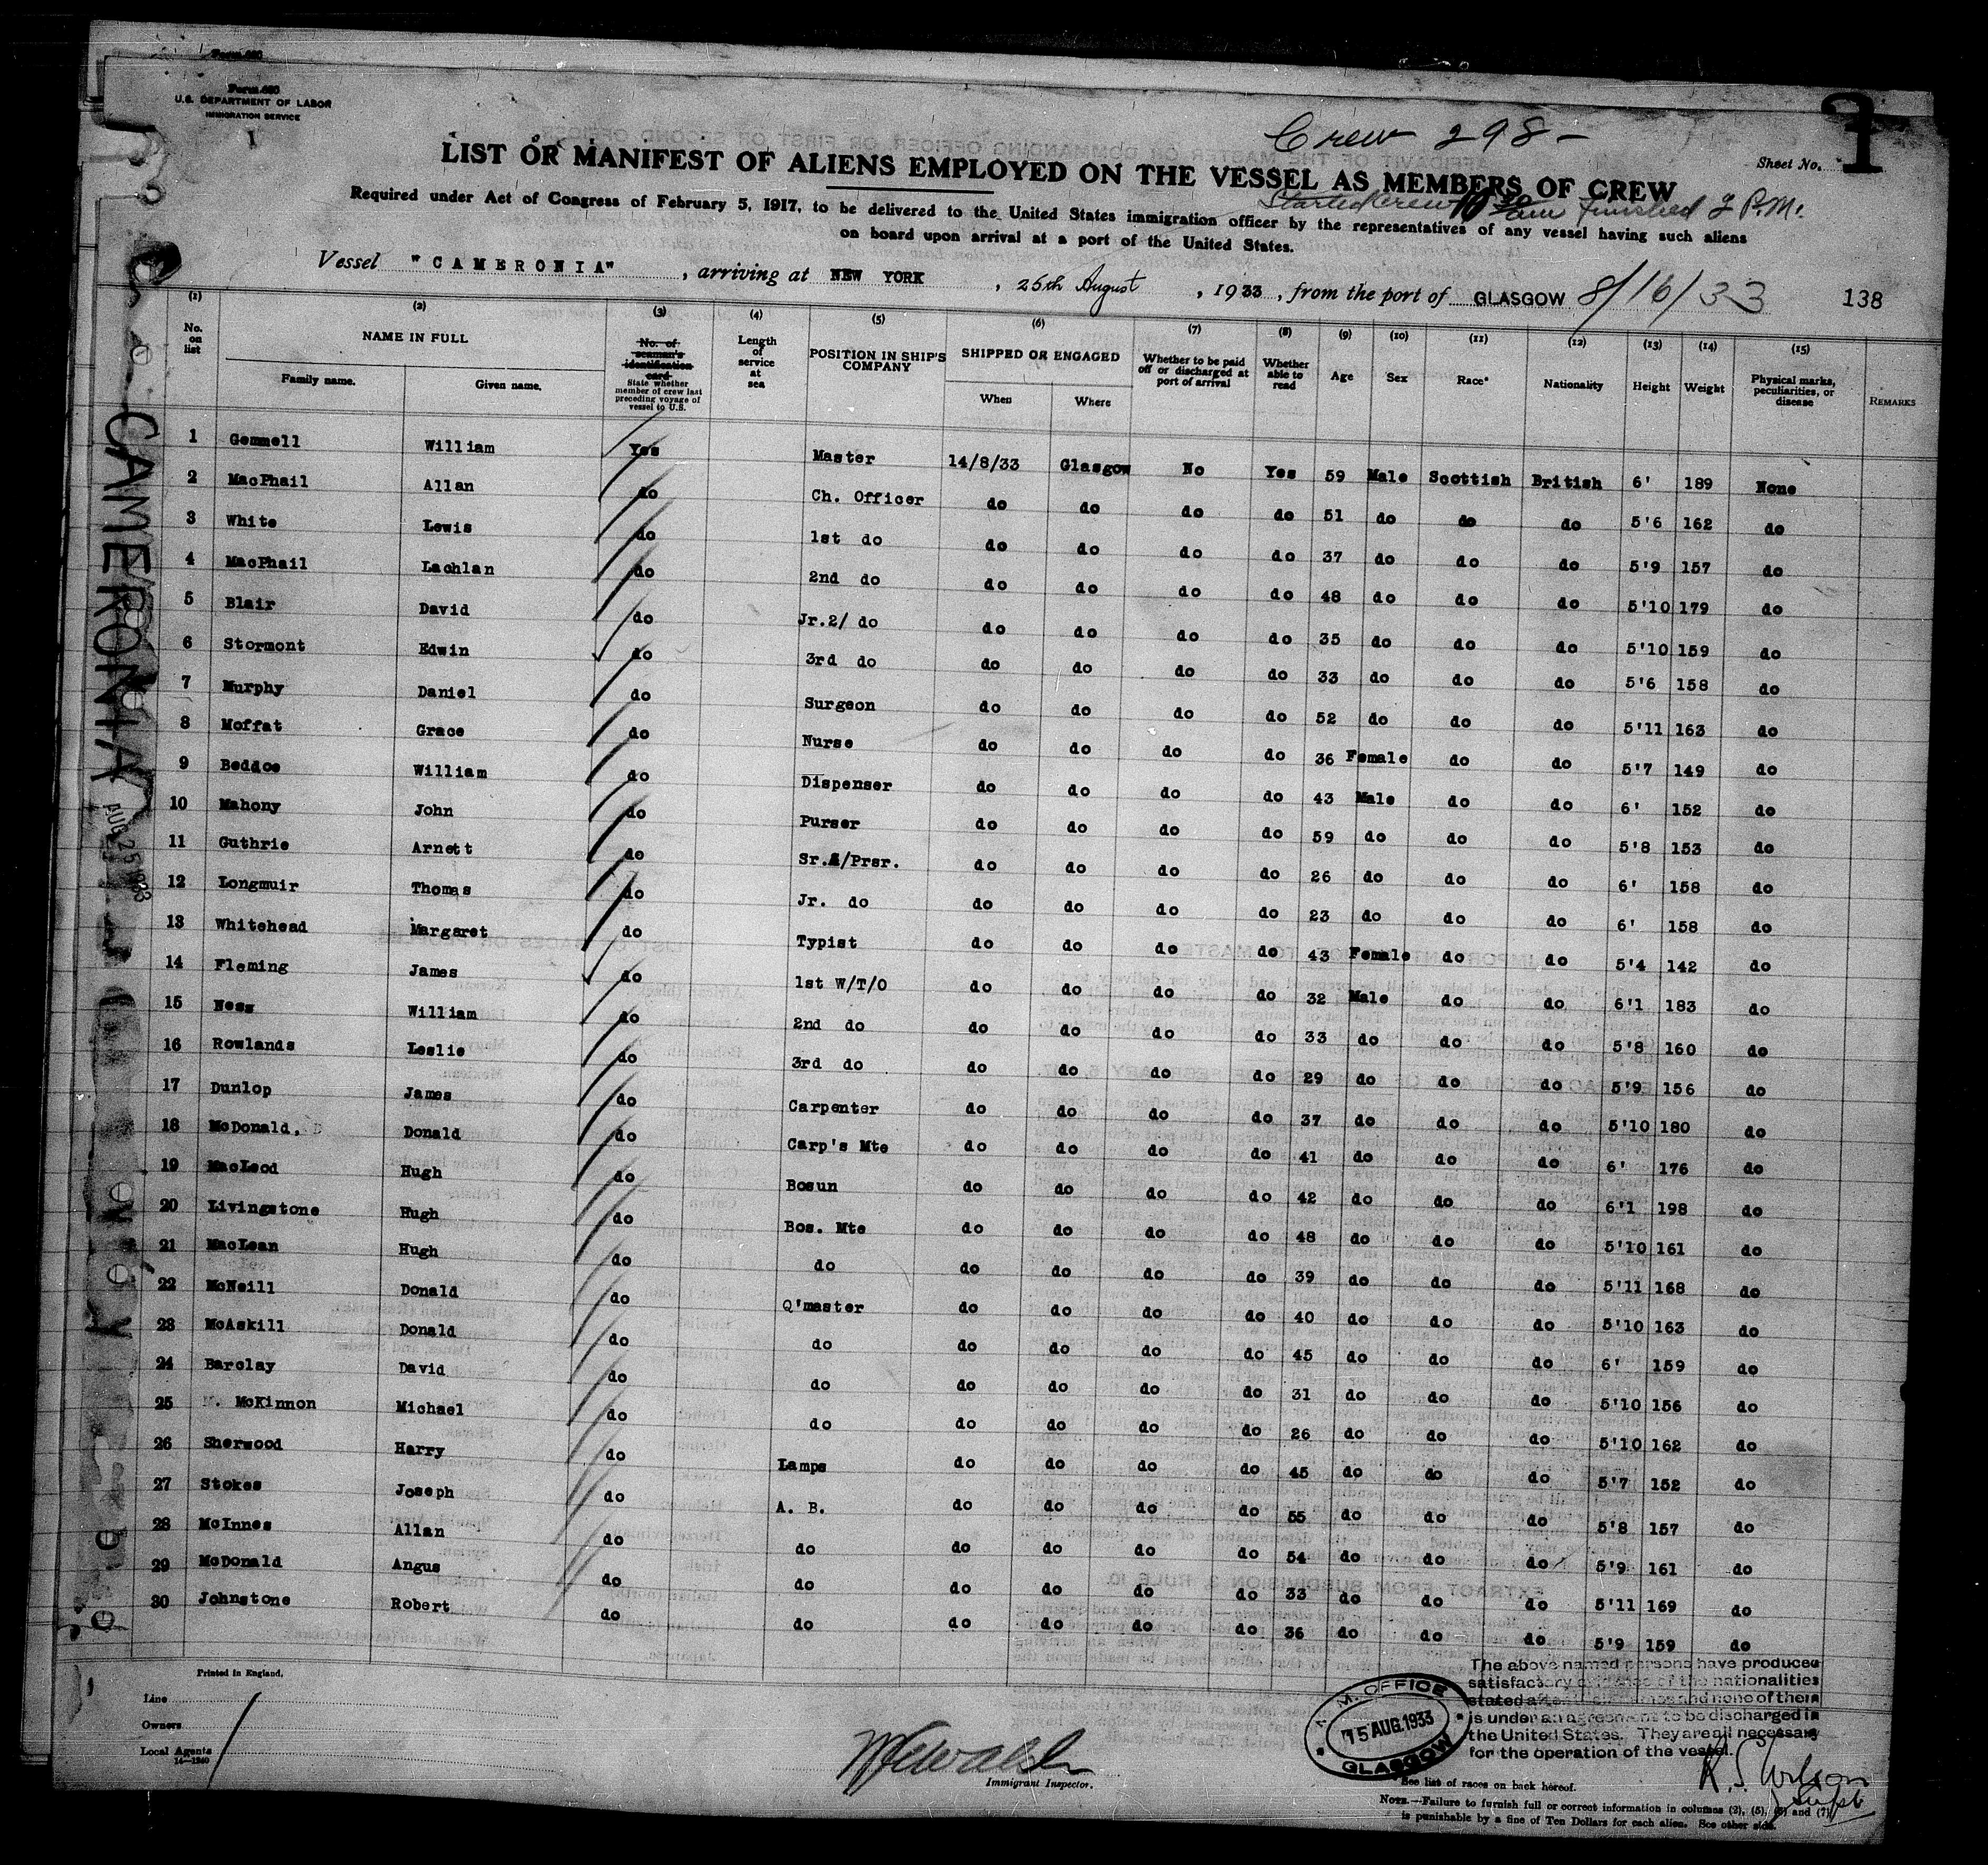 Form 680
U.S. DEPARTMENT OF LABOR
IMMIGRATION SERVICE
1
Crew 298-
Sheet No.
LIST OR MANIFEST OF ALIENS EMPLOYED ON THE VESSEL AS MEMBERS OF CREW
Started Crew 10 30 am Finished 2 P.M.
Required under Act of Congress of February 5, 1917, to be delivered to the United States immigration officer by the representatives of any vessel having such aliens
on board upon arrival at a port of the United States.
Vessel "CAMERONIA", arriving at NEW YORK, 25th August, 1933, from the port of GLASGOW 8/16/33 138
(1) (2) (3) (4) (5) (6) (7) (8) (9) (10) (11) (12) (13) (14) (15)
No. on list NAME IN FULL Family name. Given name. No. of seaman's identification card State whether member of crew last preceding voyage of vessel to U.S. Length of service at sea POSITION IN SHIP'S COMPANY SHIPPED OR ENGAGED When Where Whether to be paid off or discharged at port of arrival Whether able to read Age Sex Race* Nationality Height Weight Physical marks, peculiarities, or disease REMARKS
1 Gemmell William Yes Master 14/8/33 Glasgow No Yes 59 Male Scottish British 6' 189 None
2 MacPhail Allan do Ch. Officer do do do do 51 do do do 5'6 162 do
3 White Lewis do 1st do do do do do 37 do do do 5'9 157 do
4 MacPhail Lachlan do 2nd do do do do do 48 do do do 5'10 179 do
5 Blair David do Jr.2/ do do do do do 35 do do do 5'10 159 do
6 Stormont Edwin do 3rd do do do do do 33 do do do 5'6 158 do
7 Murphy Daniel do Surgeon do do do do 52 do do do 5'11 163 do
8 Moffat Grace do Nurse do do do do 36 Female do do 5'7 149 do
9 Beddoe William do Dispenser do do do do 43 Male do do 6' 152 do
10 Mahony John do Purser do do do do 59 do do do 5'8 153 do
11 Guthrie Arnett do Sr.A/Prsr. do do do do 26 do do do 6' 158 do
12 Longmuir Thomas do Jr. do do do do do 23 do do do 6' 158 do
13 Whitehead Margaret do Typist do do do do 43 Female do do 5'4 142 do
14 Fleming James do 1st W/T/O do do do do 32 Male do do 6'1 183 do
15 Ness William do 2nd do do do do do 33 do do do 5'8 160 do
16 Rowlands Leslie do 3rd do do do do do 29 do do do 5'9 156 do
17 Dunlop James do Carpenter do do do do 37 do do do 5'10 180 do
18 McDonald, Donald do Carp's Mte do do do do 41 do do do 6' 176 do
19 MacLeod Hugh do Bosun do do do do 42 do do do 6'1 198 do
20 Livingstone Hugh do Bos. Mte do do do do 48 do do do 5'10 161 do
21 MacLean Hugh do do do do do do 39 do do do 5'11 168 do
22 McNeill Donald do Q'master do do do do 40 do do do 5'10 163 do
23 McAskill Donald do do do do do do 45 do do do 6' 159 do
24 Barclay David do do do do do do 31 do do do 5'10 156 do
25 McKinnon Michael do do do do do do 26 do do do 5'10 162 do
26 Sherwood Harry do Lamps do do do do 45 do do do 5'7 152 do
27 Stokes Joseph do A. B. do do do do 55 do do do 5'8 157 do
28 McInnes Allan do do do do do do 54 do do do 5'9 161 do
29 McDonald Angus do do do do do do 33 do do do 5'11 169 do
30 Johnstone Robert do do do do do do 36 do do do 5'9 159 do
CAMERONIA
AUG 25 1933
Printed in England.
Line
Owners
Local Agents
14-1240
Immigrant Inspector.
M. OFFICE
15 AUG. 1933
GLASGOW
The above named persons have produced
satisfactory evidence of the nationalities
stated and none of them
is under an agreement to be discharged in
the United States. They are all necessary
for the operation of the vessel.
R. S. Wilson
Supt
*See list of races on back hereof.
NOTE.—Failure to furnish full or correct information in columns (2), (5), (6) and (7)
is punishable by a fine of Ten Dollars for each alien. See other side.